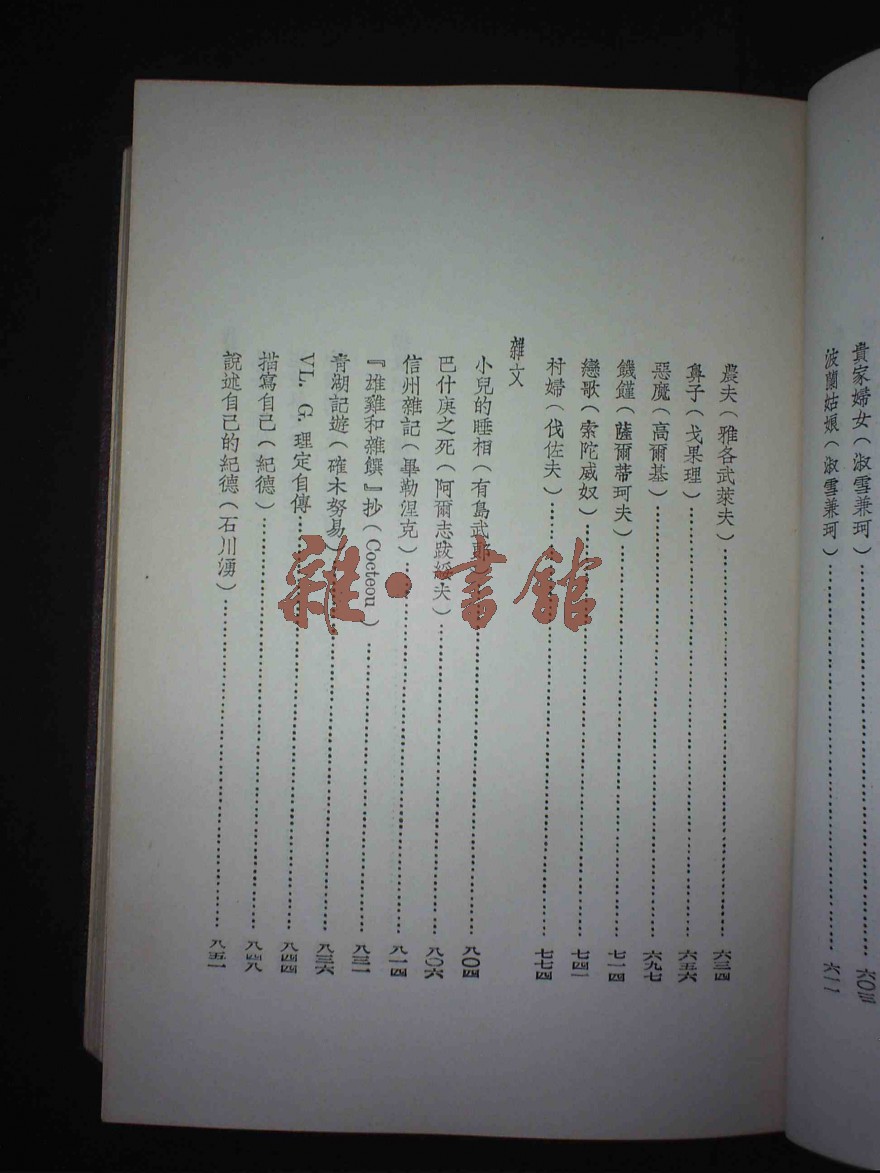 貴家婦女（淑雪兼珂）……六〇三
波蘭姑娘（淑雪兼珂）……六一一
農夫（雅各武萊夫）……六三四
鼻子（戈果理）……六五六
惡魔（高爾基）……六九七
饑饉（薩爾蒂珂夫）……七一四
戀歌（索陀威奴）……七四一
村婦（伐佐夫）……七七四
雜文
小兒的睡相（有島武郎）……八〇四
巴什庚之死（阿爾志跋綏夫）……八〇六
信州雜記（畢勒涅克）……八一四
『雄雞和雜饌』抄（Cocteau）……八三一
青湖記遊（確木努易）……八三六
VL. G. 理定自傳……八四四
描寫自己（紀德）……八四八
說述自己的紀德（石川湧）……八五一
雜·書館